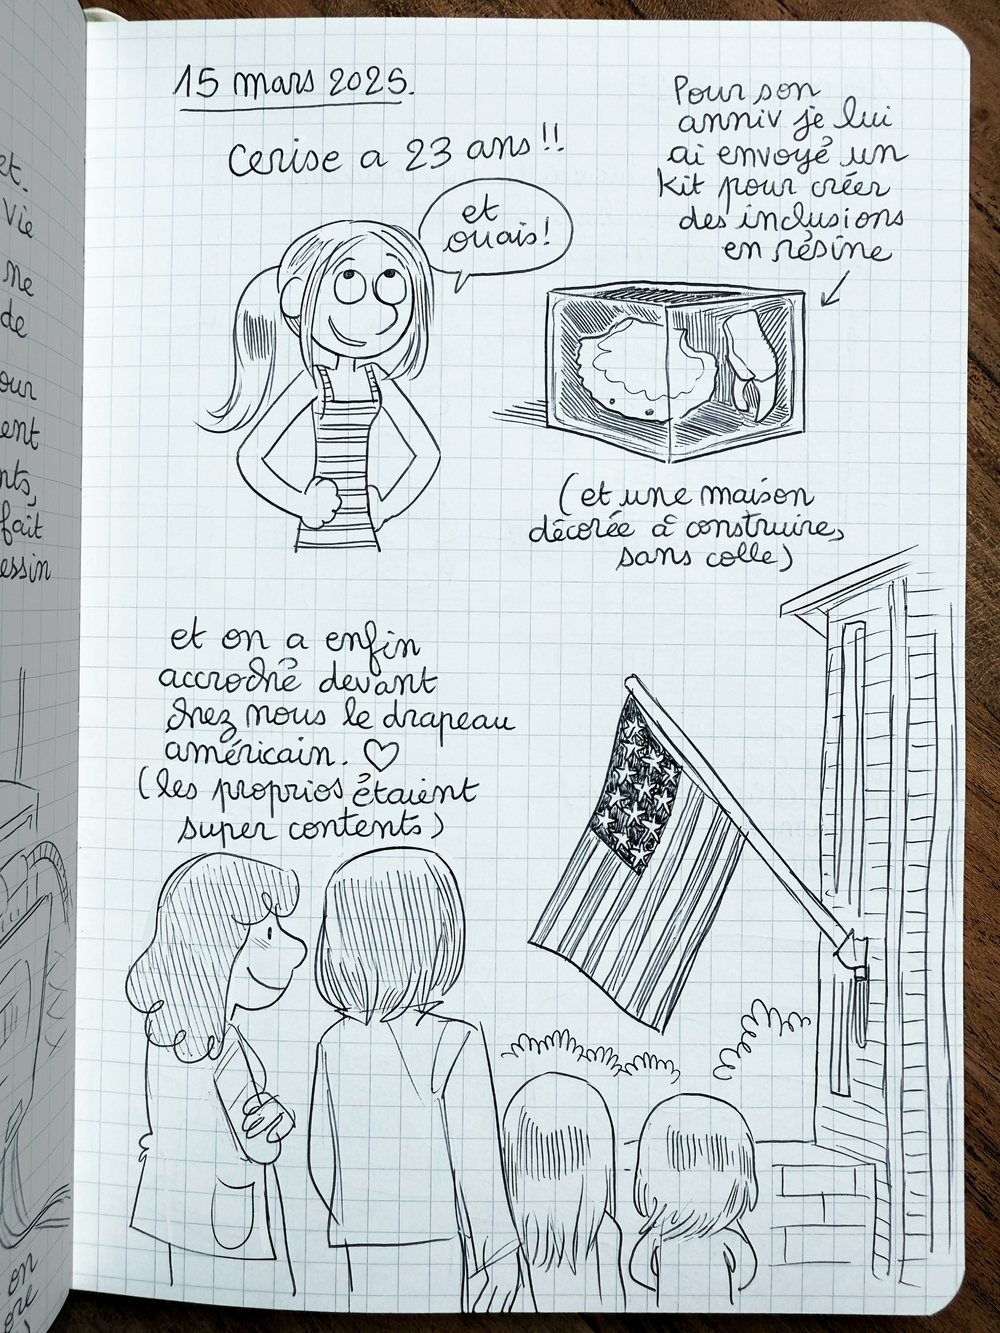 15 mars 2025.
Cerise a 23 ans!!
et
ouais!
Pour son
anniv je lui
ai envoyé un
kit pour créer
des inclusions
en résine
(et une maison
décorée à construire,
sans colle)
et on a enfin
accroché devant
chez nous le drapeau
américain. ♡
(les proprios étaient
super contents)
et.
vie
ne
de
our
ent
nts,
fait
essin
on